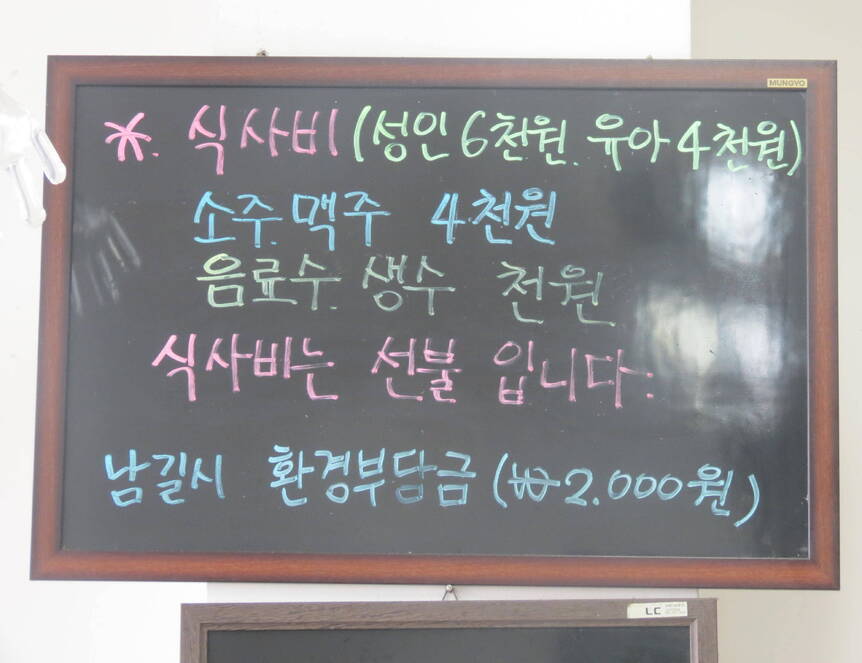 MUNGYO
*. 식사비 (성인 6천원. 유아 4천원)
소주. 맥주 4천원
음료수. 생수 천원
식사비는 선불 입니다.
남길시 환경부담금 (₩2.000원)
LC